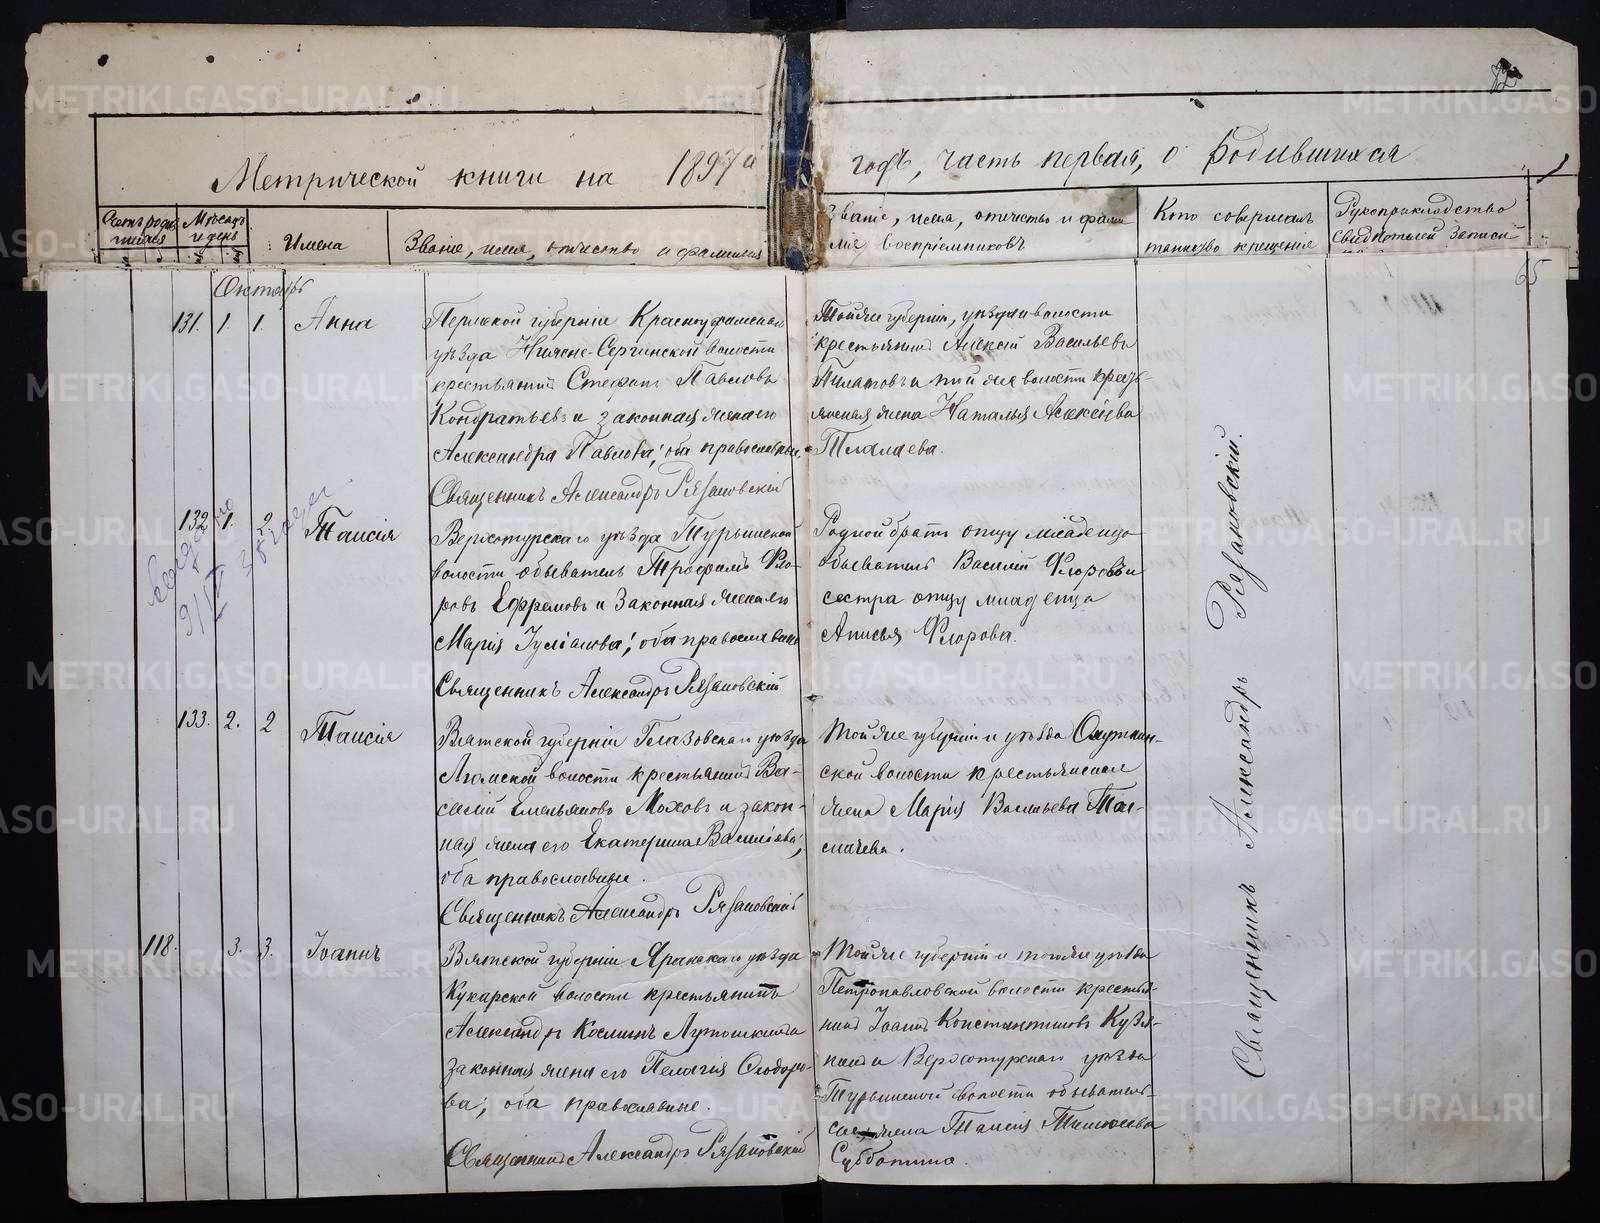 Метрической книги на 1897й
годъ, часть первая, о родившихся
Счетъ родив
шихся
Мѣсяцъ
и день
Имена
Званіе, имя, отчество и фамилія
Званіе, имя, отчество и фами
лія воспріемниковъ
Кто совершалъ
таинство крещенія
Рукоприкладство
свидѣтелей записи
65
Октябрь
131. 1. 1. Анна
Пермской губерніи Красноуфимскаго
уѣзда Нижне-Сергинской волости
крестьянинъ Стефанъ Павловъ
Кондратьевъ и законная жена его
Александра Павлова; оба православные.
Священникъ Александръ Рязановскій
Той же губерніи, уѣзда и волости
крестьянинъ Алексій Васильевъ
Пилатовъ и той же волости кресть-
янская жена Наталья Алексіева
132 1. 2. Таисія
Верхотурскаго уѣзда Турьинской
волости обыватель Трофимъ Фло-
ровъ Ефремовъ и законная жена его
Марія Іуліанова; оба православные
Священникъ Александръ Рязановскій
Родной братъ отцу младенца
обыватель Василій Флоровъ и
сестра отцу младенца
Анисья Флорова.
133. 2. 2 Таисія
Вятской губерніи Глазовскаго уѣзда
волости крестьянинъ Ва-
силій Емельяновъ Моховъ и закон-
ная жена его Екатерина Васильева;
оба православные.
Священникъ Александръ Рязановскій
Той же губерніи и уѣзда
ской волости крестьянская
жена Марія Васильева Тол-
мачева.
118. 3. 3. Іоаннъ
Вятской губерніи Яранскаго уѣзда
Кукарской волости крестьянинъ
Александръ Косминъ Лутошкинъ и
законная жена его Пелагія Ѳеодоро-
ва; оба православные.
Священникъ Александръ Рязановскій
Той же губерніи и того же уѣзда
Петропавловской волости крестья-
нинъ Іоаннъ Константиновъ Кузя-
нинъ и Верхотурскаго уѣзда
Турьинской волости обыватель-
ская жена Таисія Тимоѳеева
Субботина.
Священникъ Александръ Рязановскій.
METRIKI.GASO-URAL.RU